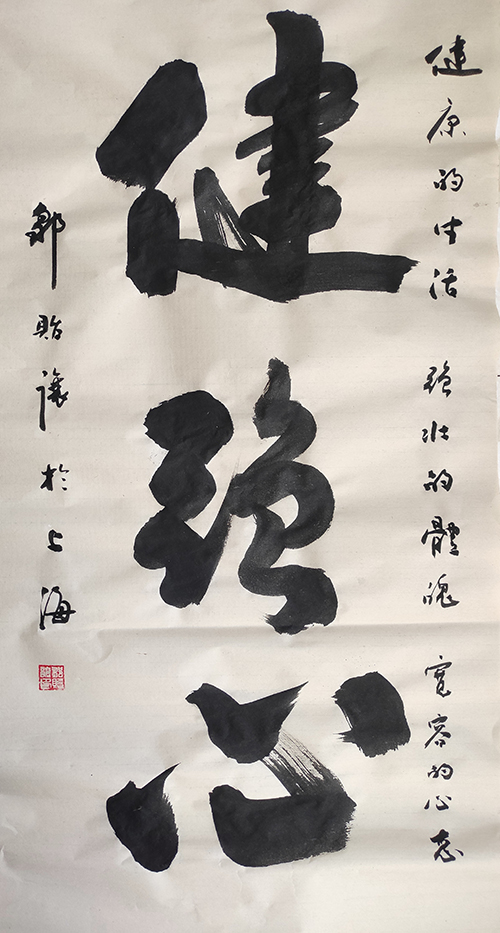 健康的生活 強壯的體魄 寬容的心态
健強心
鄒貽讓於上海